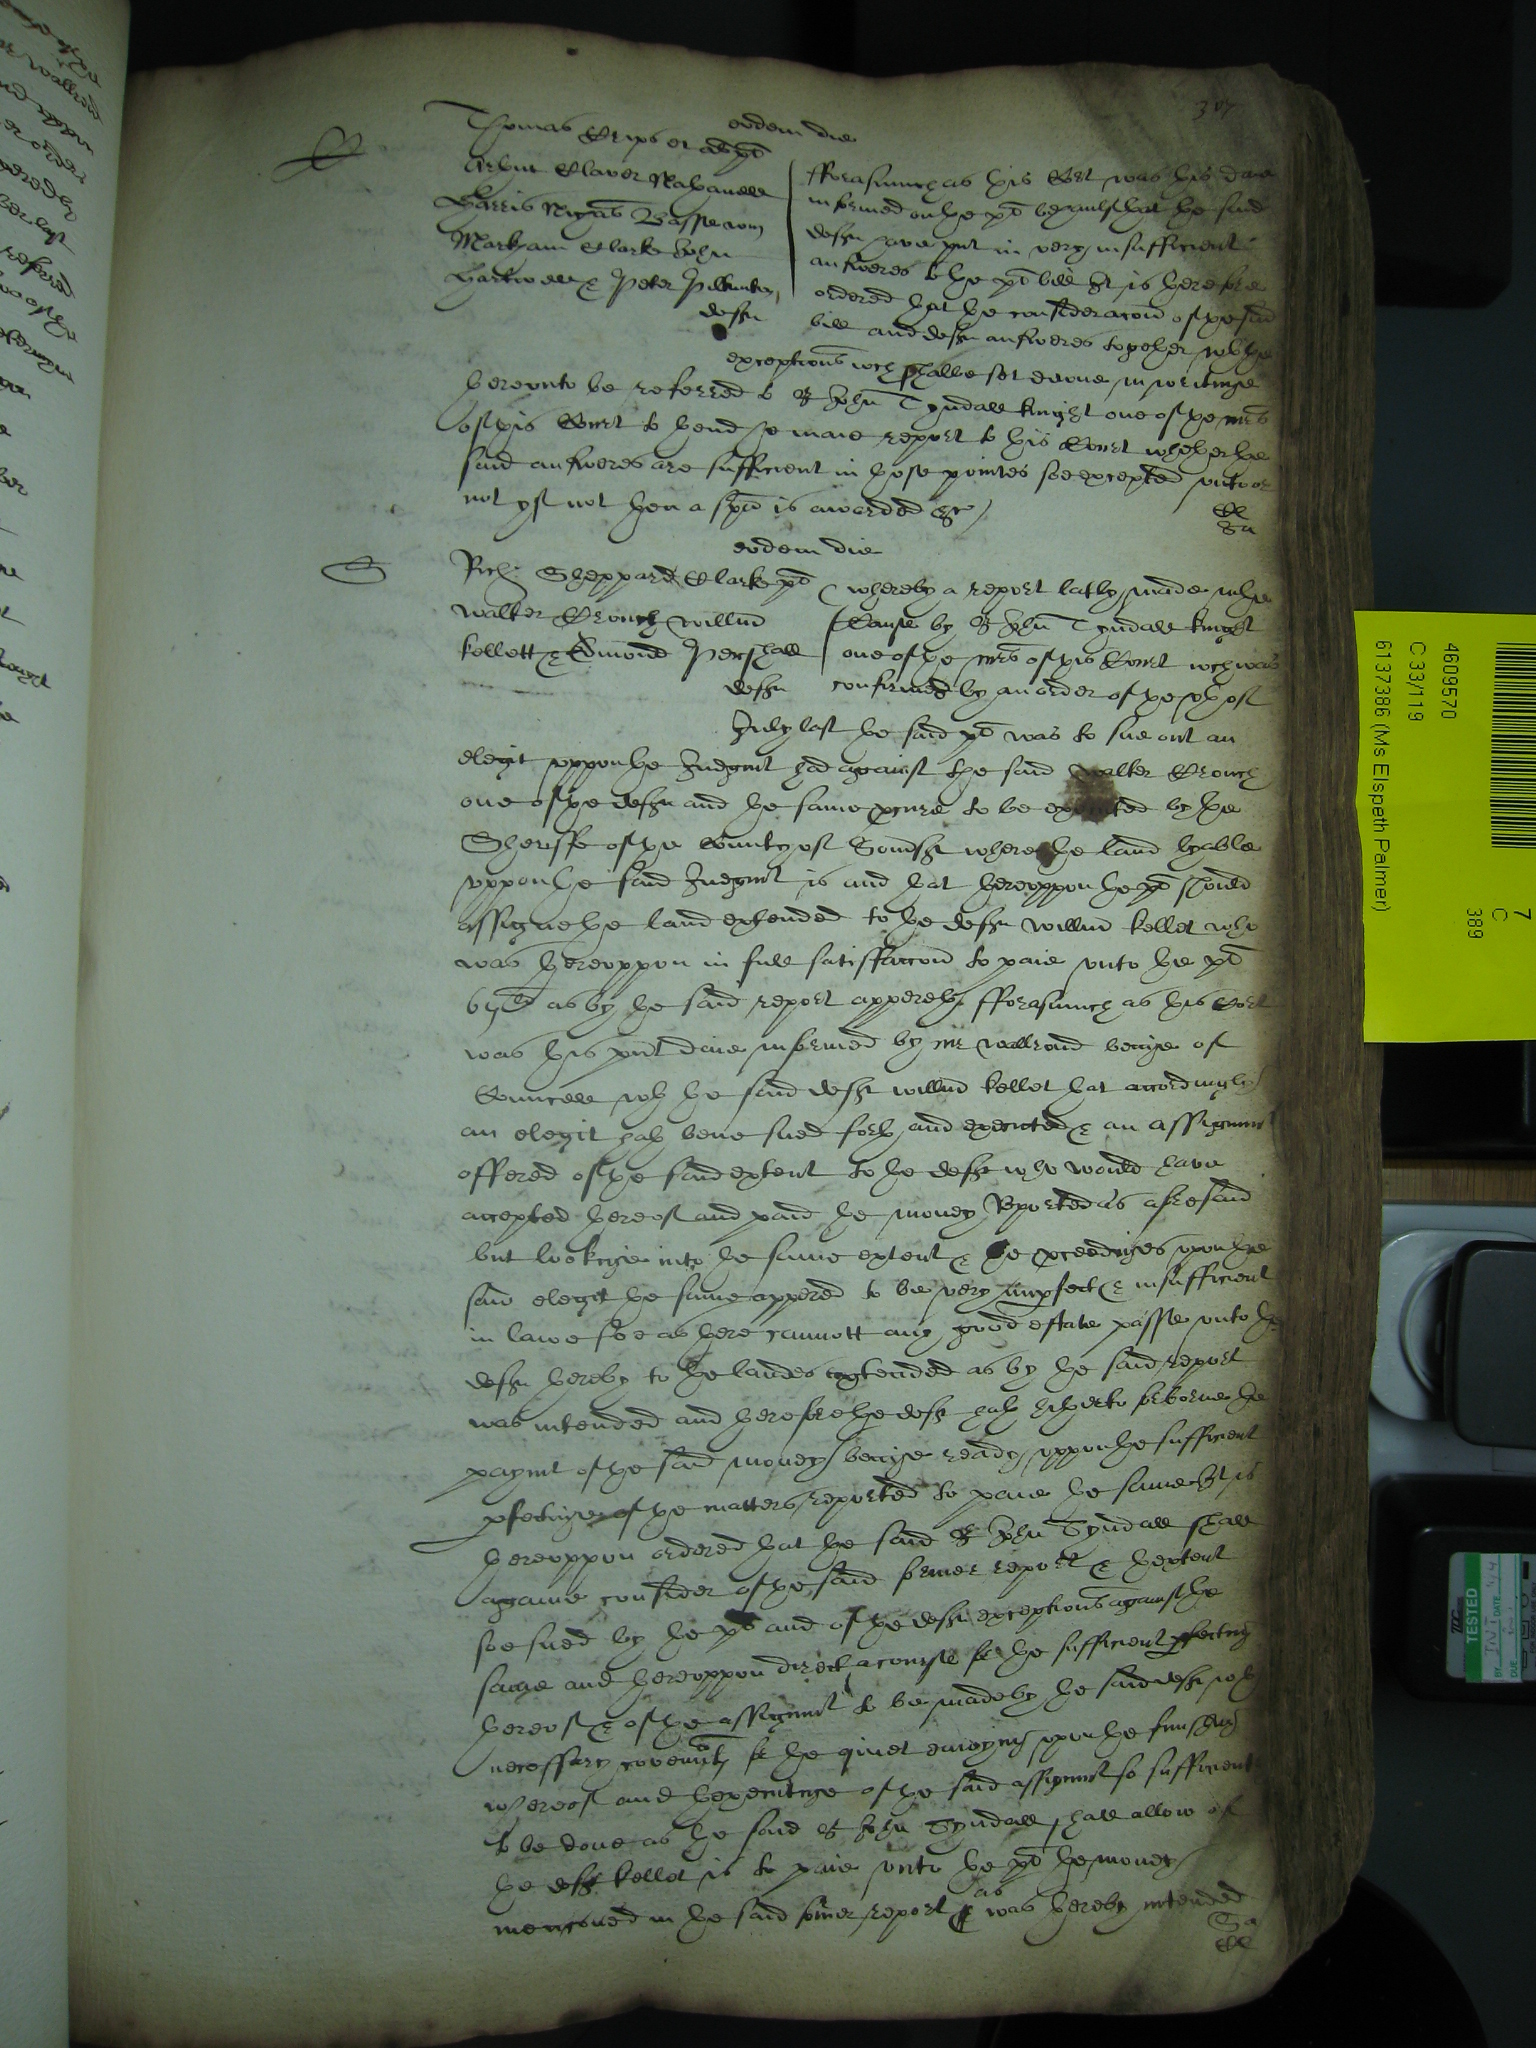 307
eodem die
C
Thomas Crips et al pl
Arthur Claver Nathaniell
Harris Basse
Markham Clarke John
Hartwell & Peter Pilkinton
deftes
fforasmuch as this Cort was this daie
informed on the pl behaulf that the said
deftes have put in very insufficient
answeres to the pl bill It is therefore
ordered that the consideracon of the said
bill and deftes answeres together wth the
exceptions wch shalbe set downe in writinge
thereunto be referred to Sr John Tyndall knight one of the mrs
of this Court to thend he maie report to this Court whether the
said answeres are sufficient in those pointes soe excepted unto or
not yf not then a spa is awarded &c
eodem die
S
Rich: Sheppard Clarke pl
Walter Crouch Willm
Kellett & Edmond Pershall
deftes
whereby a report latly made in the
Cause by Sr John Tyndall knight
one of the mrs of this Court wch was
confirmed by an order of the vth of
July last the said pl was to sue out an
elegit uppon the Judgmt had against the said Walter Crouch
one of the deftes and the same pcure to be executed by the
Sheriffe of the County of Somst where the land lyable
uppon the said Judgmt is and that thereuppon the pl should
assigne the land extended to the defte Willm Kellet who
was thereuppon in full satisfaccon to paie unto the pl
as by the said report appereth fforasmuch as this Cort
was this pnt daie informed by mr Walrond beinge of
Councell wth the said defte Willm Kellet that accordingly
an elegit hath bene sued forth and executed & an assignmt
offered of the said extent to the defte who would have
accepted thereof and paid the money Reported as aforesaid
but lookinge into the same extent & the pceedinges upon the
said elegit the same appered to be very impfect & insufficient
in lawe soe as there cannott any good estate passe unto the
defte thereby to the landes extended as by the said report
was intended and therefore the defte hath hitherto forborne the
paymt of the said money beinge ready uppon the sufficient
pfectinge of the matters reported to paie the same It is
thereuppon ordered that the said Sr John Tyndall shall
againe consider of the said former report & thextent
soe sued by the pl and of the deftes exceptions against the
same and thereuppon direct a course for the sufficient pfecting
thereof & of the assignmt to be made by the said deftes wth
necessary covennts for the quiet enioying upon the finishing
whereof and thexecutinge of the said assignmt so sufficient
to be done as the said Sr John Tyndall shall allow of
the defte Kellet is to paie unto the pl the money
mencioned in the said former report as was thereby intended
4609570
C 33/119
6137386 (Ms Elspeth Palmer)
7
C
389
TESTED
BY
DATE
DUE